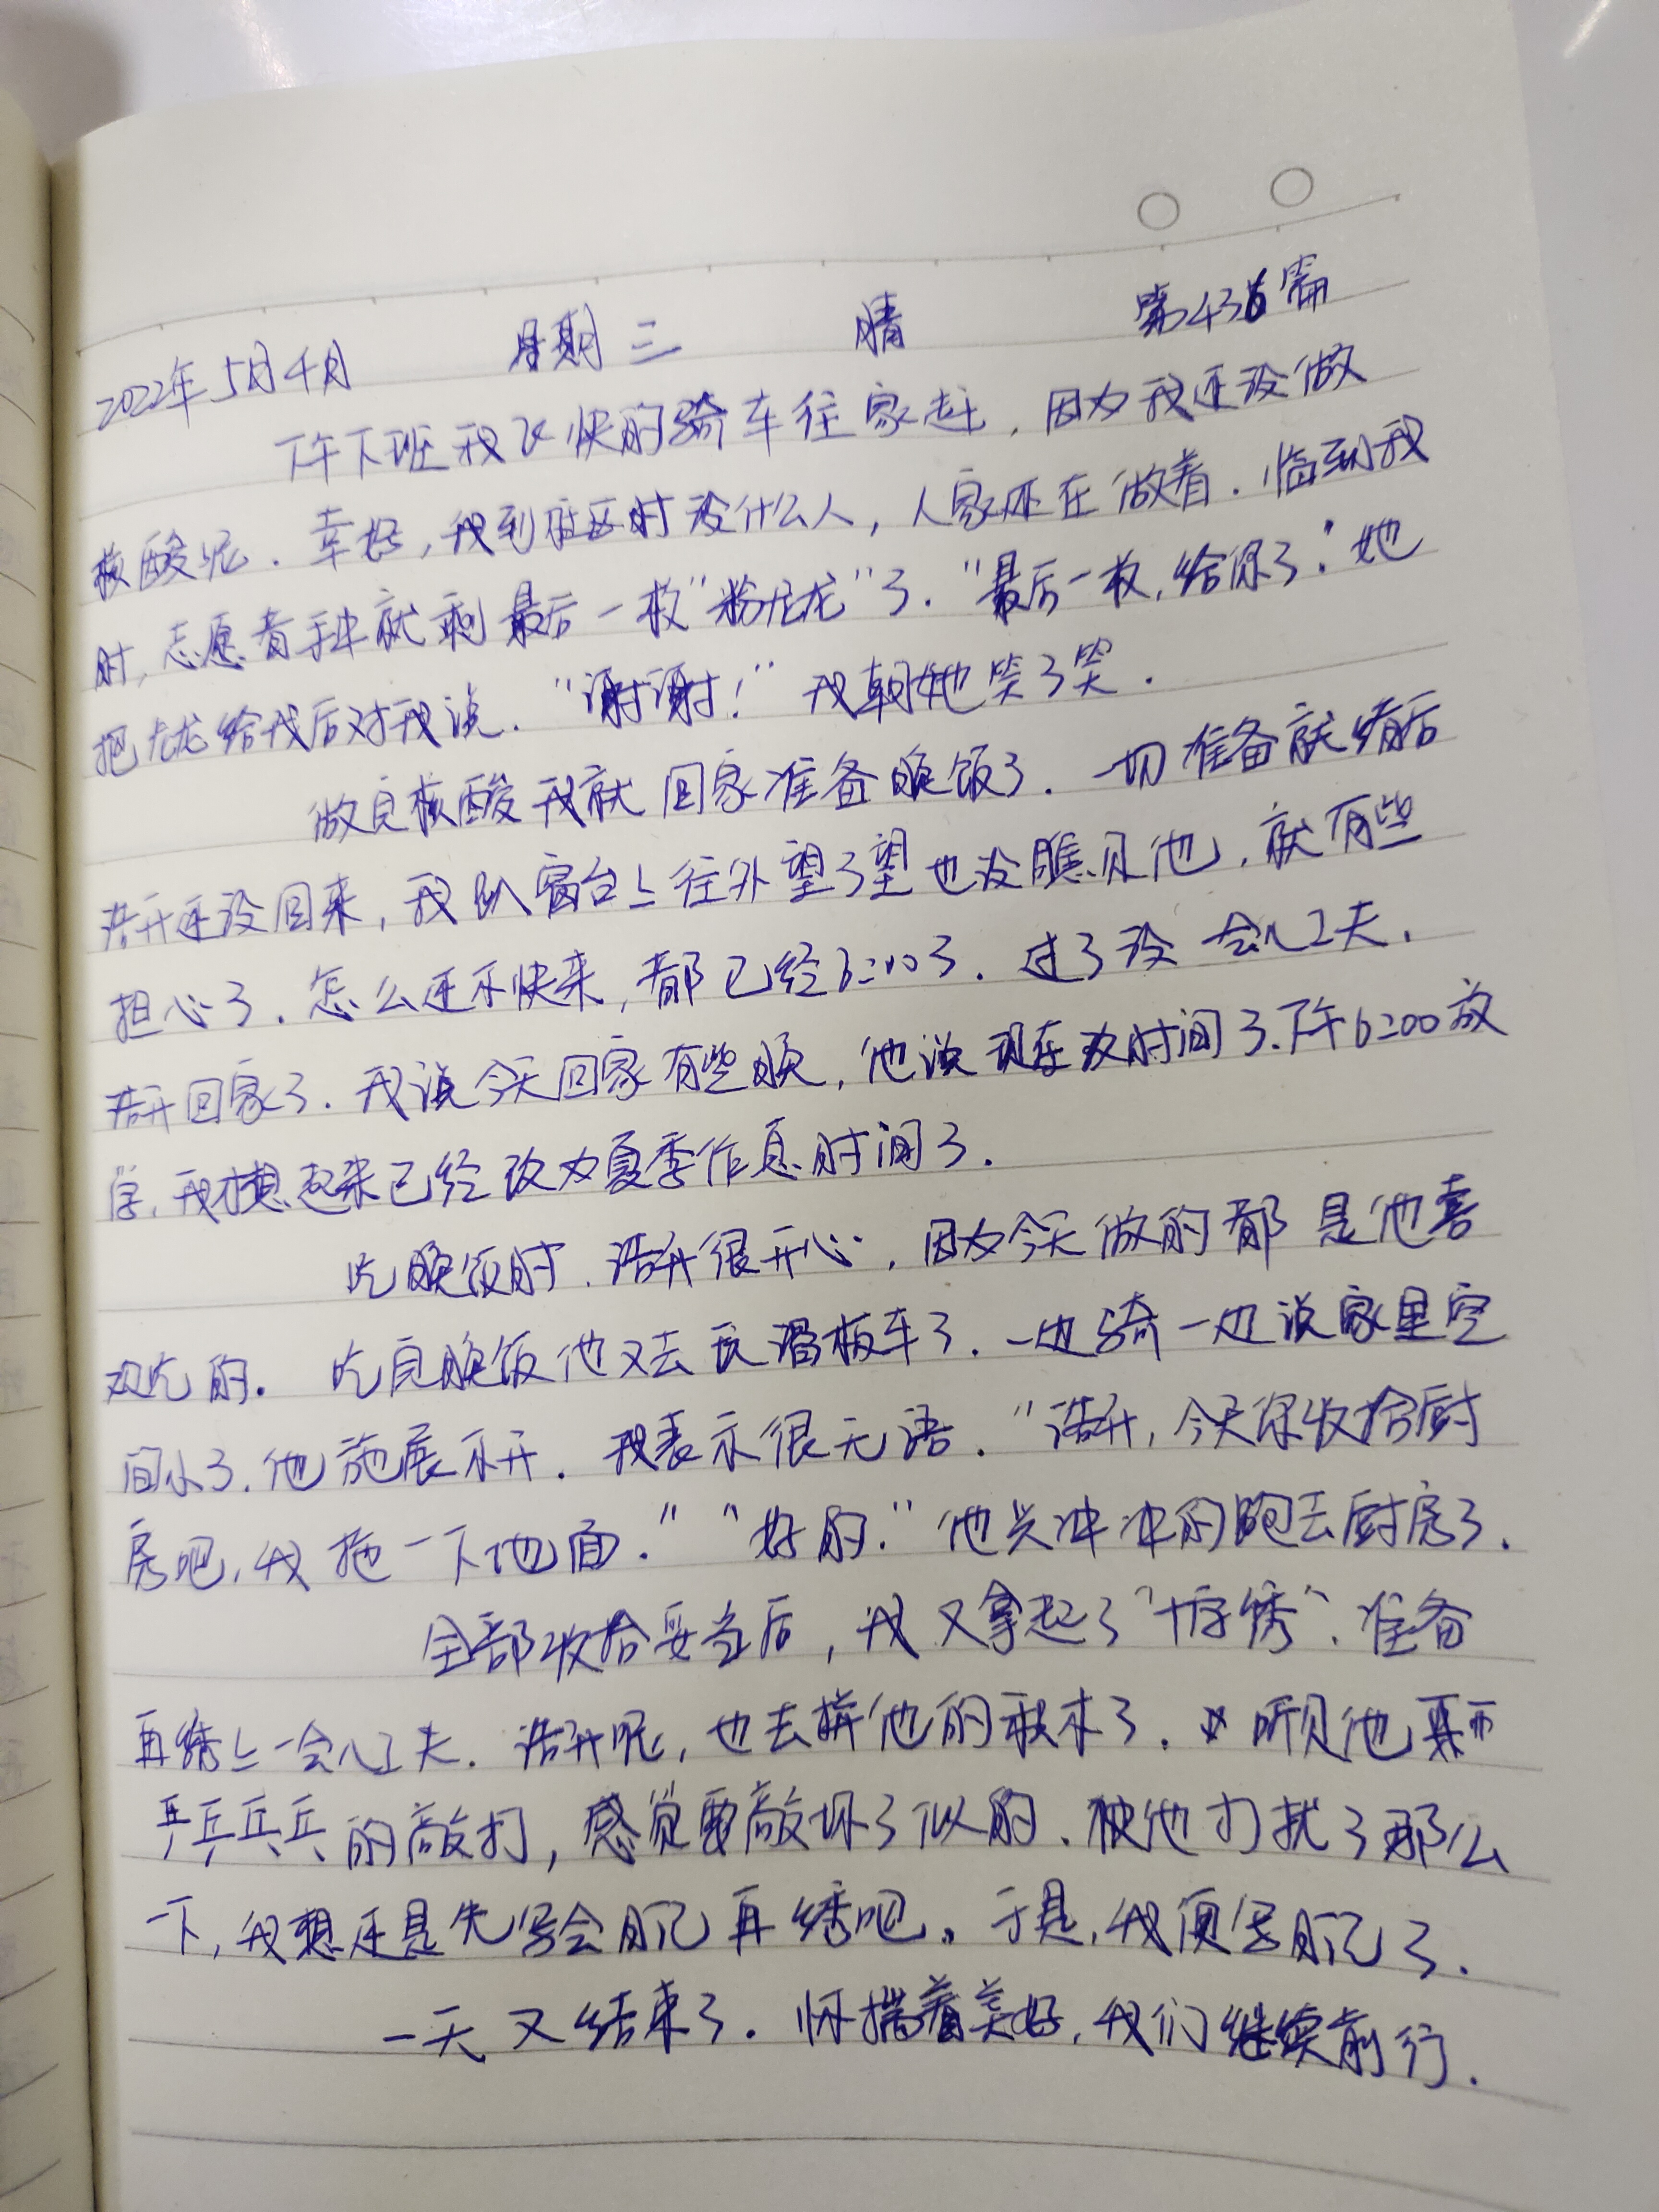 2022年5月4日 星期三 晴 第436篇
下午下班我飞快的骑车往家赶，因为我还没做
核酸呢.幸好,我到社区时没什么人，人家还在做着.临到我
时,志愿者手中就剩最后一枚"粉尤龙"了."最后一枚,给你了."她
把尤龙给我后对我说."谢谢!"我朝她笑了笑.
做完核酸我就回家准备晚饭了.一切准备就绪后
浩升还没回来,我趴窗台上往外望了望也没瞧见他,就有些
担心了.怎么还不快来,都已经6:10了.过了没一会儿工夫,
浩升回家了.我说今天回家有些晚,他说现在改时间了.下午6:00放
学,我才想起来已经改为夏季作息时间了.
吃晚饭时.浩升很开心,因为今天做的都是他喜
欢吃的.吃完晚饭他又去玩滑板车了.一边骑一边说家里空
间小了.他施展不开.我表示很无语."浩升,今天你收拾厨
房吧,我拖一下地面.""好的."他兴冲冲的跑去厨房了.
全部收拾妥当后,我又拿起了"十字绣".准备
再绣上一会儿工夫.浩升呢,也去拼他的积木了.听见他
乒乓乒乓的敲打,感觉要敲坏了似的.被他打扰了那么
一下,我想还是先写会日记再绣吧。于是,我便写日记了.
一天又结束了.怀揣着美好,我们继续前行.